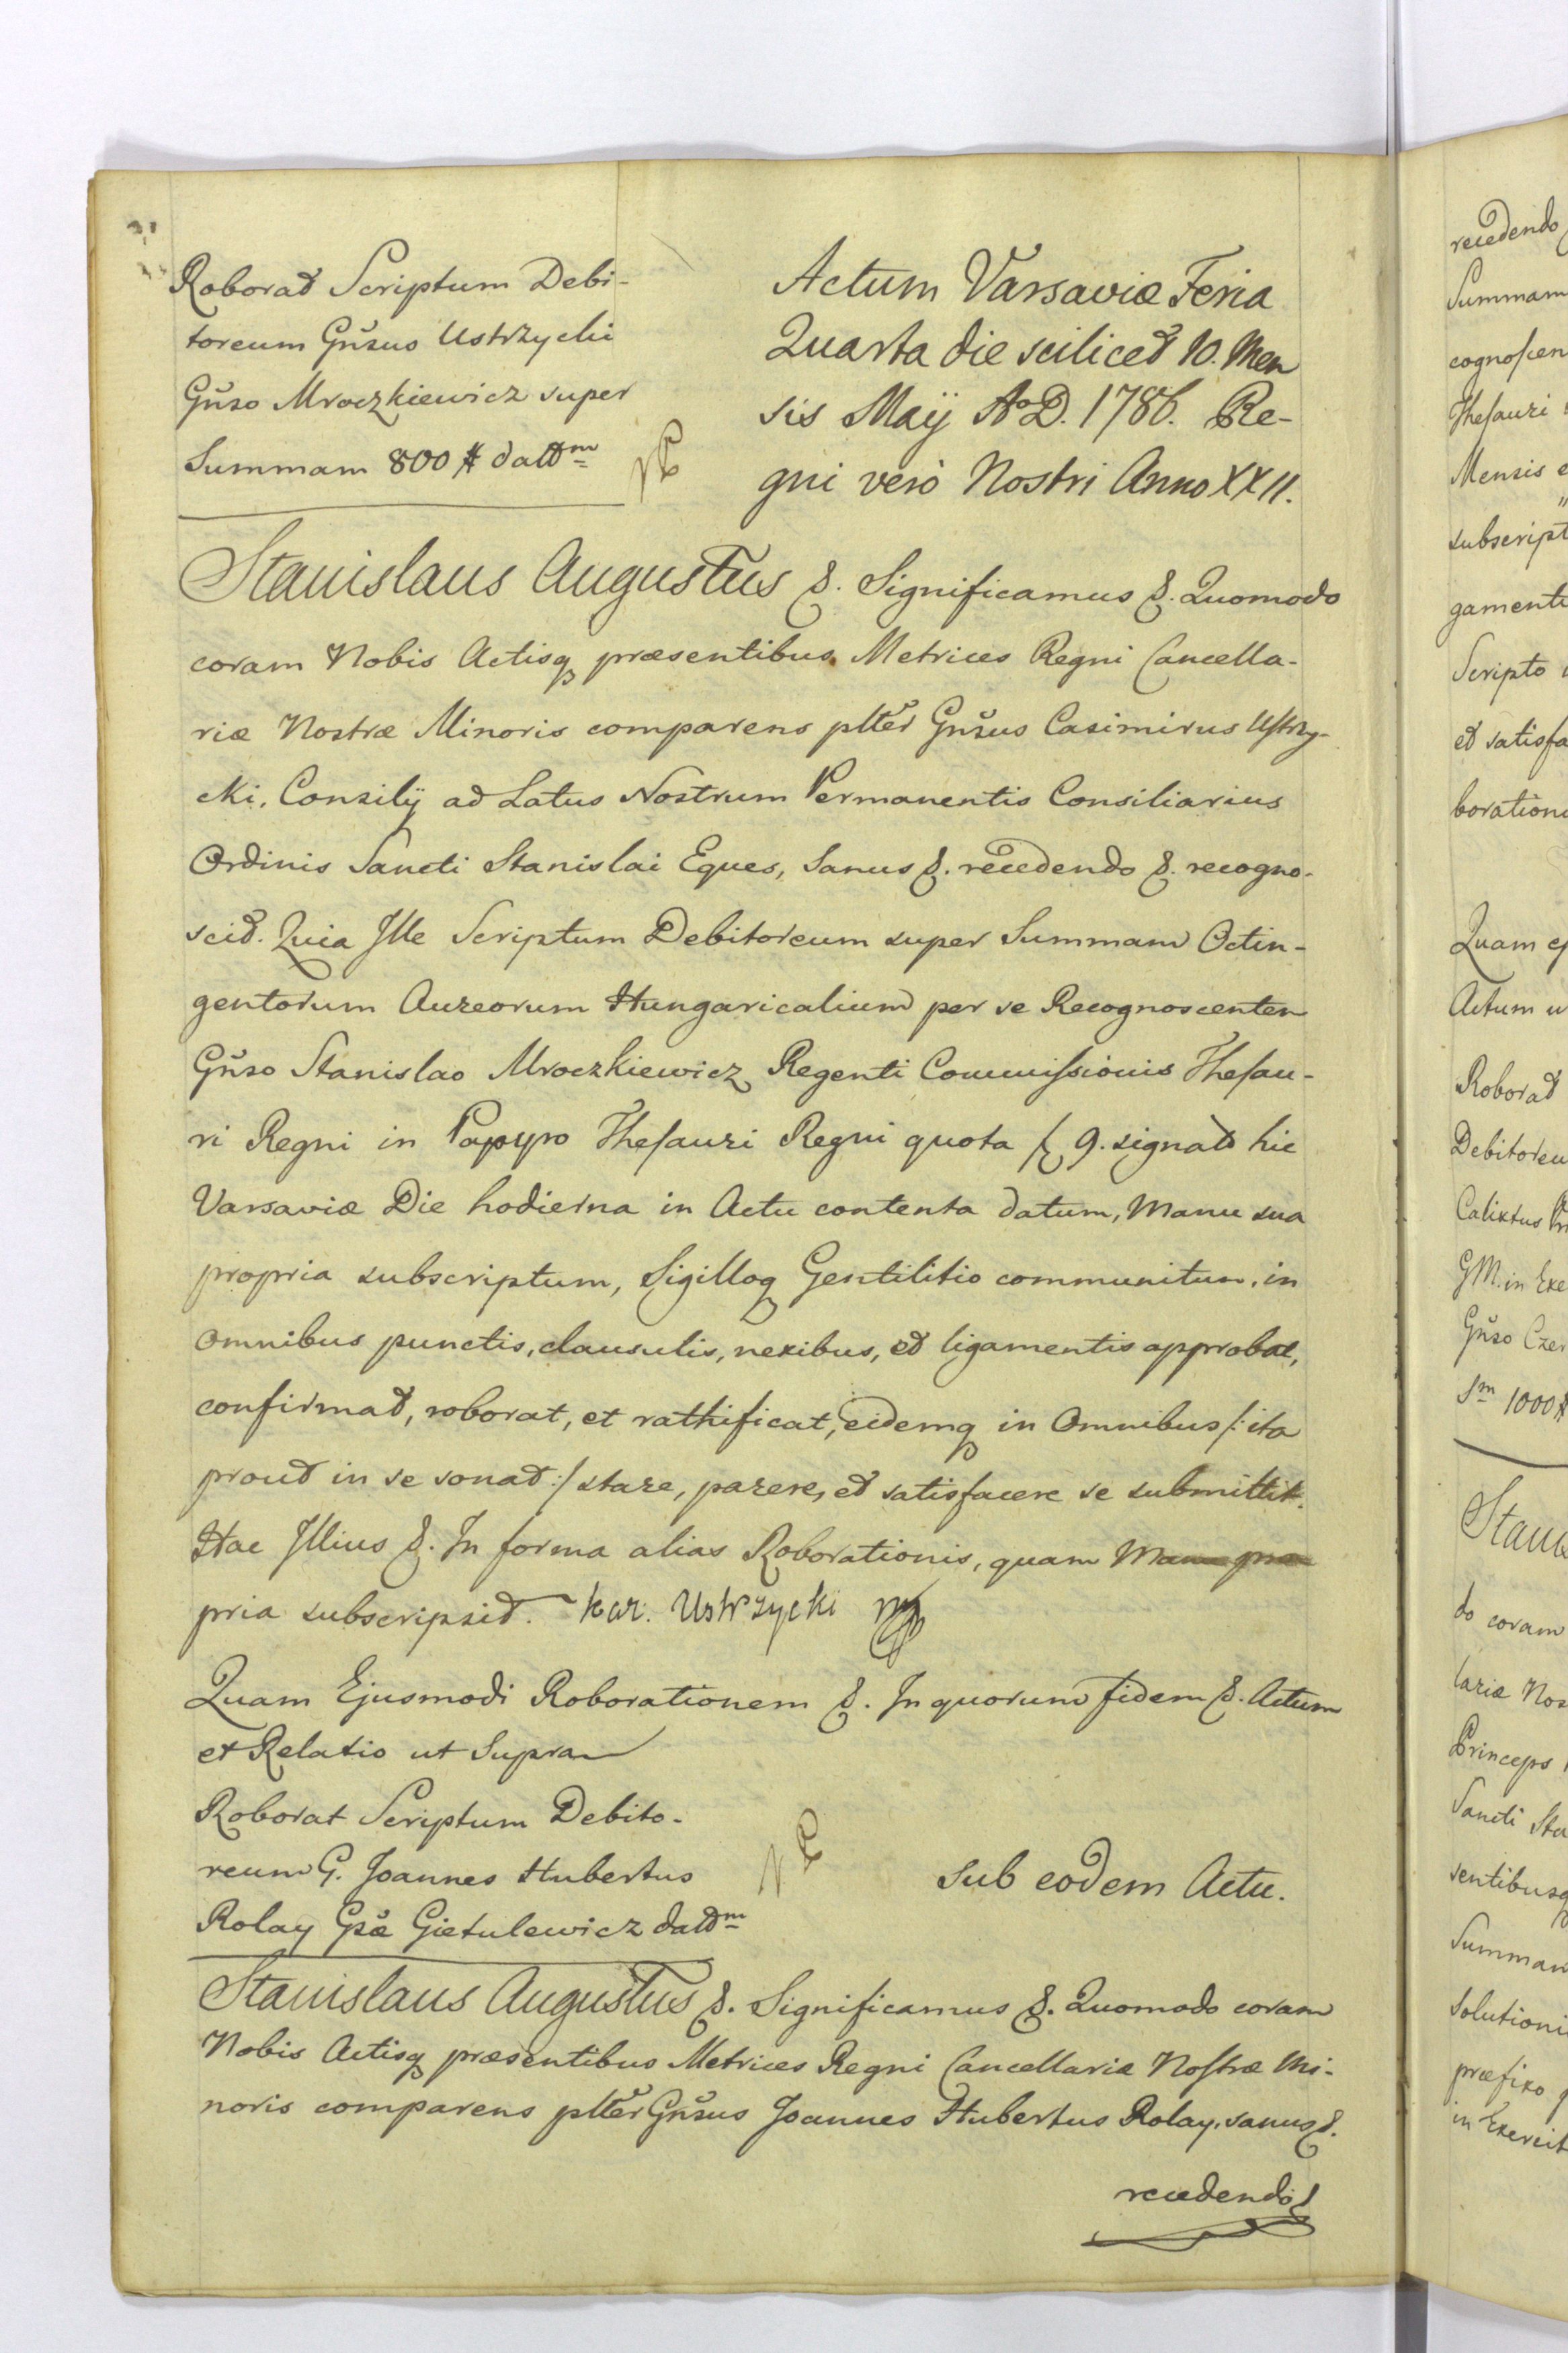 Roborat Scriptum Debi-
toreum Gnsus Ustrzycki
Gnso Mroczkiewicz super
Summam 800 # datt^m
Actum Varsaviæ Feria
Quarta die scilicet 10. Men
sis Maÿ A°D. 1786. Re-
gni verò Nostri Anno XXII.
Stanislaus Augustus &. Significamus &. Quomodo
coram Nobis Actisq præsentibus Metrices Regni Cancella-
riæ Nostræ Minoris comparens pltěr Gnsus Casimirus Ustrzy-
cki, Consilÿ ad Latus Nostrum Permanentis Consiliarius
Ordinis Sancti Stanislai Eques, Sanus &. recedendo &. recogno-
scit. Quia Ille Scriptum Debitoreum super Summam Octin-
gentorum Aureorum Hungaricalium per se Recognoscentem
Gnso Stanislao Mroczkiewicz Regenti Commissionis Thesau-
ri Regni in Papyro Thesauri Regni quota f 9. signato hic
Varsaviæ Die hodierna in Actu contenta datum, Manu sua
propria subscriptum, Sigilloq Gentilitio communitum, in
Omnibus punctis, clausulis, nexibus, et ligamentis approbat,
confirmat, roborat, et rathificat, eidemq in Omnibus /: ita
prout in se sonat :/ stare, parere, et satisfacere se submittit.
Hac Illius &. In forma alias Roborationis, quam Manu pro
pria subscripsit. Kaz. Ustrzycki
Quam Ejusmodi Roborationem &. In quorum fidem &. Actum
et Relatio ut Supra
Roborat Scriptum Debito-
reum G. Joannes Hubertus
Rolay Gsæ Gietulewicz datt^m
Sub eodem Actu.
Stanislaus Augustus &. Significamus &. Quomodo coram
Nobis Actisq præsentibus Metrices Regni Cancellariæ Nostræ Mi-
noris comparens pltěr Gnsus Joannes Hubertus Rolay, sanus &.
recedendo
recedendo
Summam
cognoscen
Thesauri
Mensis
subscript
gamenti
Scripto
et satisfa
boration
Quam ej
Actum u
Roborat
Debitoreu
Calixtus
GM. in Exe
Gnso Czer
S^m 1000 #
Stanis
do coram
lariæ Nos
Princeps
Sancti Sta
sentibusq
Summam
solutioni
præfixo
in Exercit